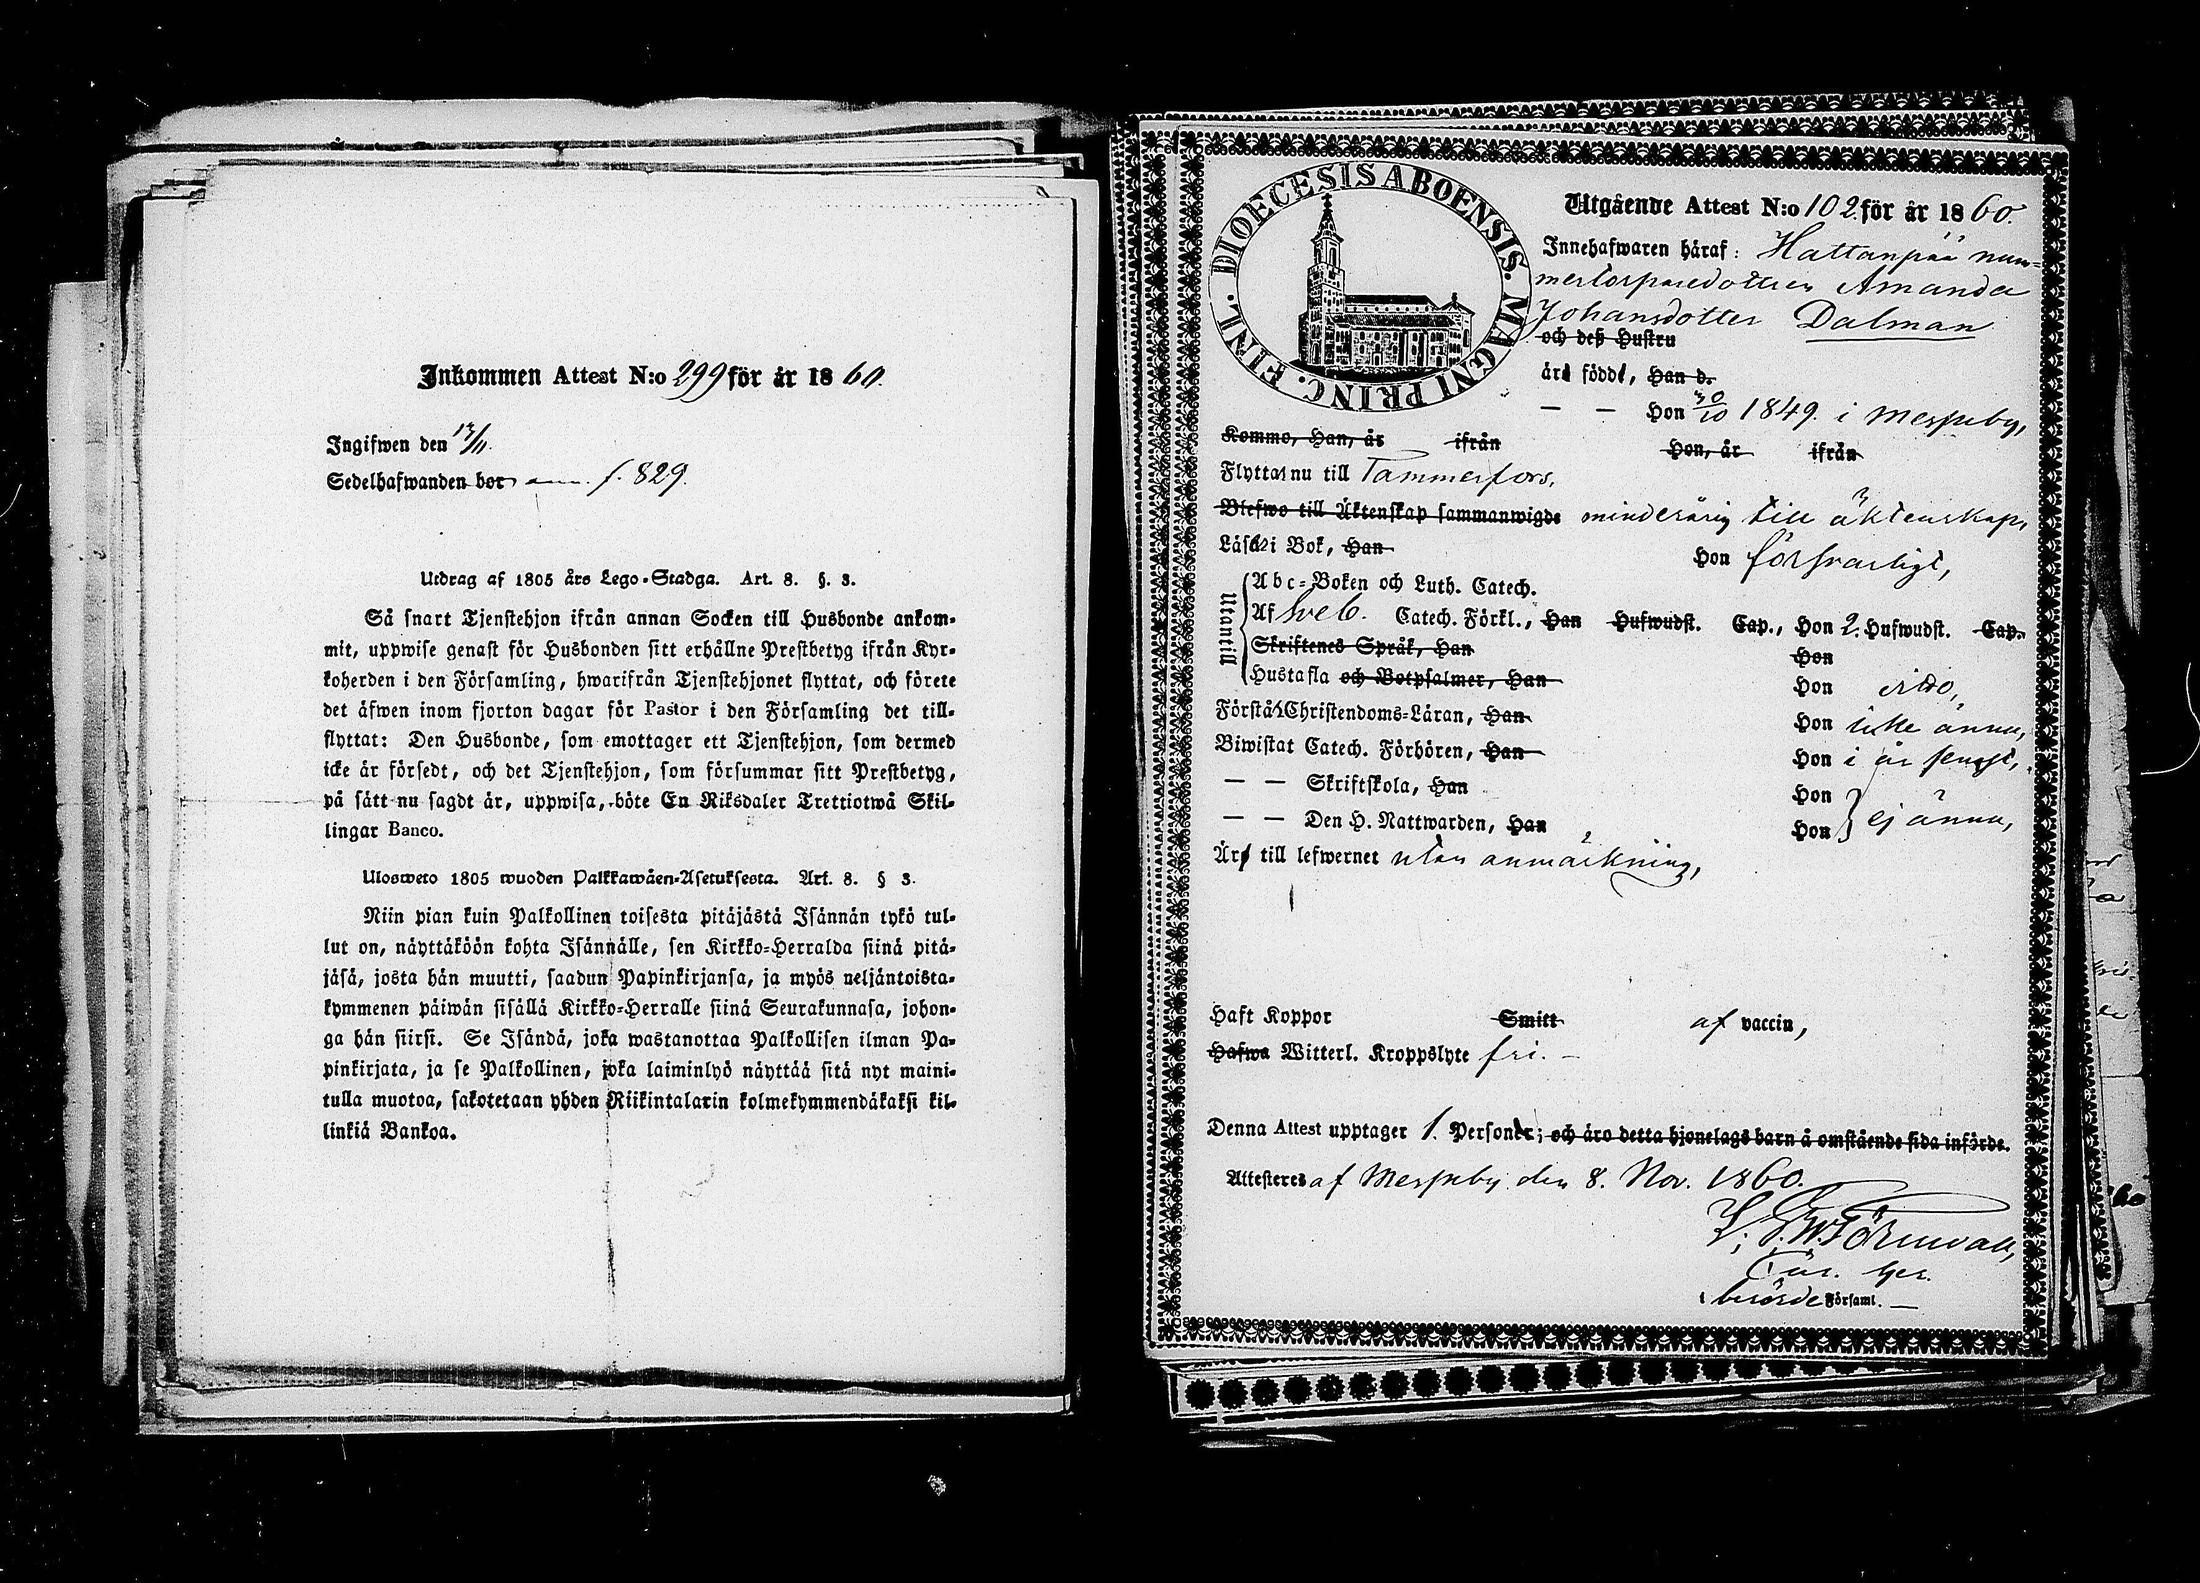 Inkommen Attest N:o 299 för år 1860.
Ingifwen den 13/11.
Sedelhafwanden bor f. 829.
Utdrag af 1805 års Lego-Stadga. Art. 8. §. 3.
Så snart Tjenstehjon ifrån annan Socken till Husbonde ankom-
mit, uppwise genast för Husbonden sitt erhållne Prestbetyg ifrån Kyr-
koherden i den Församling, hwarifrån Tjenstehjonet flyttat, och förete
det äfwen inom fjorton dagar för Pastor i den Församling det till-
flyttat: Den Husbonde, som emottager ett Tjenstehjon, som dermed
icke är försedt, och det Tjenstehjon, som försummar sitt Prestbetyg,
på sätt nu sagdt är, uppwisa, böte En Riksdaler Trettiotwå Skil-
lingar Banco.
Ulosweto 1805 wuoden Palkkawäen-Asetuksesta. Art. 8. § 3.
Niin pian kuin Palkollinen toisesta pitäjästä Isännän tykö tul-
lut on, näyttäköön kohta Isännälle, sen Kirkko-Herralda siinä pitä-
jäsä, josta hän muutti, saadun Papinkirjansa, ja myös neljäntoista-
kymmenen päiwän sisällä Kirkko-Herralle siinä Seurakunnasa, johon-
ga hän siirsi. Se Isändä, joka wastanottaa Palkollisen ilman Pa-
pinkirjata, ja se Palkollinen, joka laiminlyö näyttää sitä nyt maini-
tulla muotoa, sakotetaan yhden Riikintalarin kolmekymmendäkaksi kil-
linkiä Bankoa.
DIOECESIS ABOENSIS. MAGNI PRINC. FINL.
Utgående Attest N:o 102 för år 1860.
Innehafwaren häraf: Hattanpää num-
mertorparedottren Amanda
Johansdotter Dalman
och dess Hustru
är född, Han d.
— — Hon 30/10 1849. i Messuby,
Kommo, Han, år ifrån Hon, år ifrån
Flyttar nu till Tammerfors,
Blefwo till Äktenskap sammanwigde minderårig till äktenskap,
Läser i Bok, Han Hon försvarligt,
Utantill
Abc-Boken och Luth. Catech.
Af Sveb. Catech. Förkl., Han Hufwudst. Cap., Hon 2. Hufwudst. Cap.
Skriftenes Språk, Han Hon
Hustafla och Botpsalmer, Han Hon
Förstår Christendoms-Läran, Han Hon icke ännu,
Biwistat Catech. Förhören, Han Hon i år senast,
— — Skriftskola, Han Hon
— — Den H. Nattwarden, Han Hon ej ännu,
Är till lefwernet utan anmärkning,
Haft Koppor Smitt af vaccin,
Hafwa Witterl. Kroppslyte fri. —
Denna Attest upptager 1. Person; och äro detta hjonelags barn å omstående sida införde.
Attesteres af Messuby den 8. Nov. 1860.
Törnwall,
berörde Församl. —